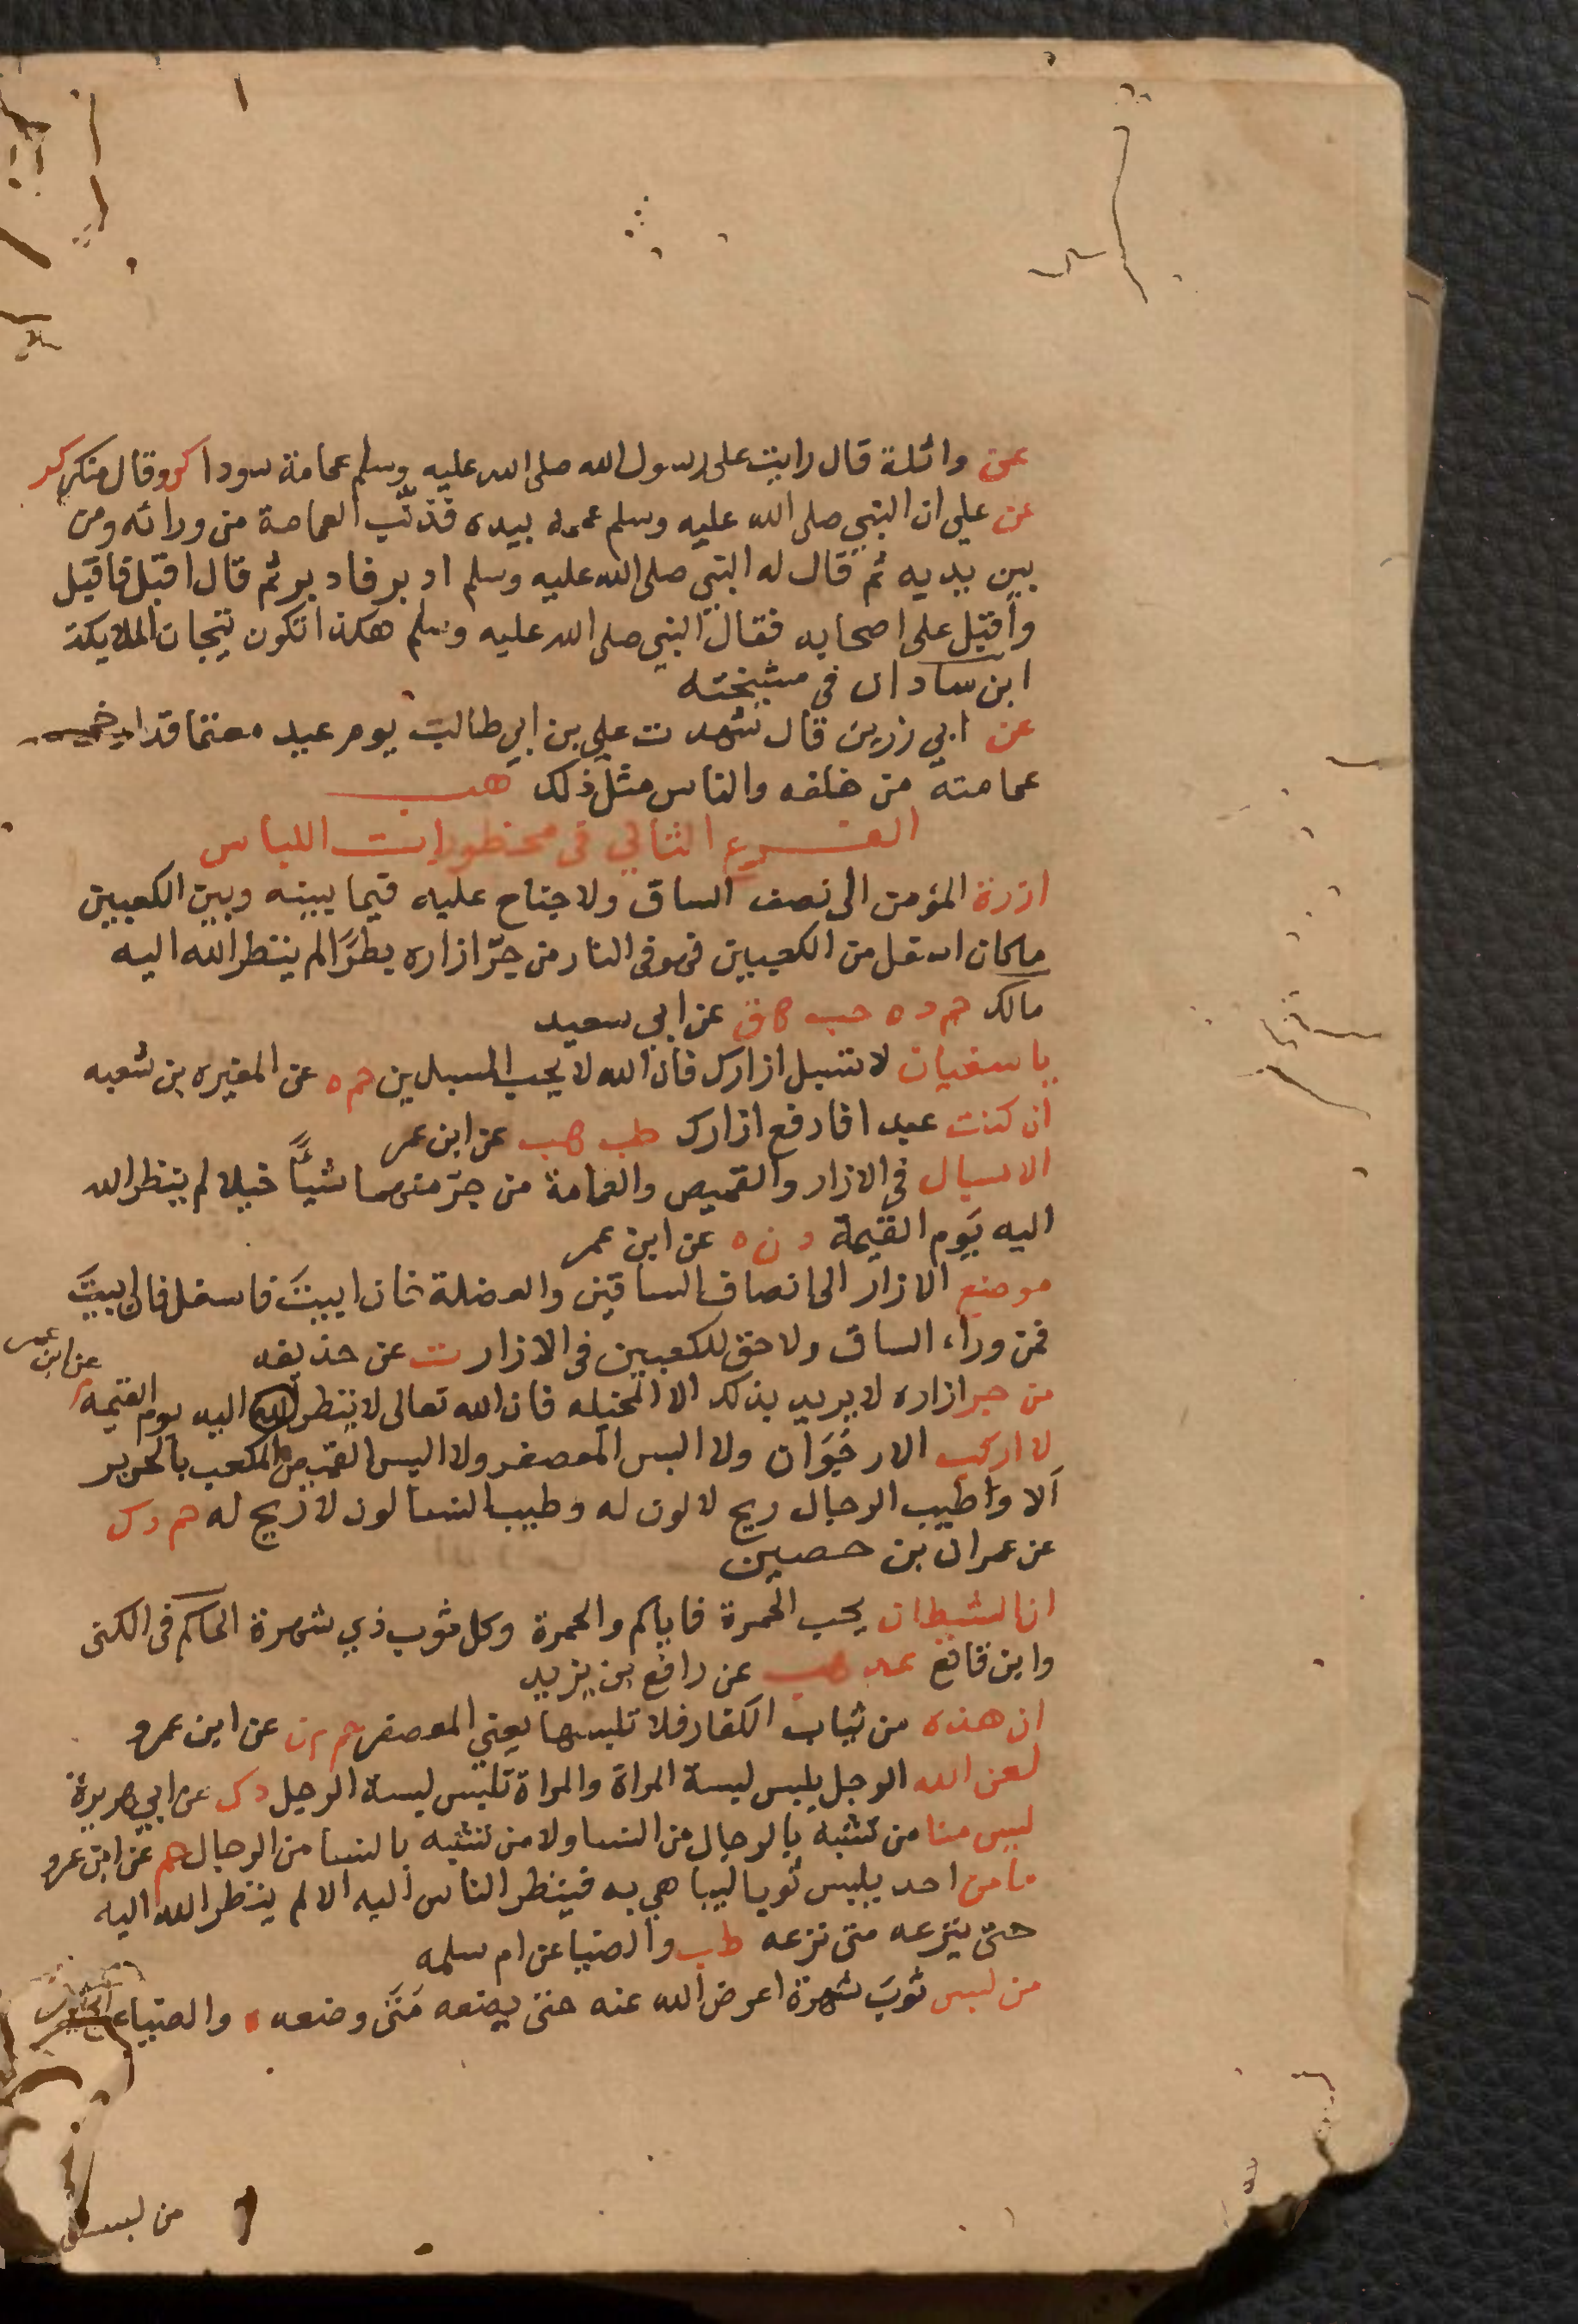 عن واثلة قال رايت على رسول الله صلى الله عليه وسلم عمامة سودا كر وقال منكر كر
عن علي ان النبي صلى الله عليه وسلم عممه بيده فذنّب العمامة من ورائه ومن
بين يديه ثم قال له النبي صلى الله عليه وسلم ادبر فادبر ثم قال اقبل فاقبل
واقبل على اصحابه فقال النبي صلى الله عليه وسلم هكذا تكون تيجان الملايكة
ابن شاذان في مشيخته
عن ابي رزين قال شهدت علي بن ابي طالب يوم عيد معتما قد ارخى
عمامته من خلفه والناس مثل ذلك هب
الفرع الثاني في محظورات اللباس
ازرة المؤمن الى نصف الساق ولا جناح عليه فيما بينه وبين الكعبين
ماكان اسفل من الكعبين فهو في النار من جرّ ازاره بطرًا لم ينظر الله اليه
مالك حم د ه حب هق عن ابي سعيد
ياسفيان لا تسبل ازارك فان الله لا يحب المسبلين حم ه عن المغيره بن شعبه
ان كنت عبد افارفع ازارك طب هب عن ابن عمر
الاسبال في الازار والقميص والعمامة من جرّ منهما شيأً خيلا لم ينظر الله
اليه يوم القيمة د ن ه عن ابن عمر
موضع الازار الى انصاف الساقين والعضلة فان ابيتَ فاسفل فان ابيتَ
فمن وراء الساق ولا حق للكعبين في الازار ت عن حذيفه
من جر ازاره لا يريد بذلك الا المخيله فان الله تعالى لا ينظر الله اليه يوم القيمه عن ابن عمر
لا اركب الارجوان ولا البس المعصفر ولا البس القميص المكعب بالحرير
ألا واطيب الرجال ريح لا لون له وطيب النسا لون لا ريح له حم د ك
عن عمران بن حصين
ان الشيطان يحب الحمرة فاياكم والحمرة وكل ثوب ذي شهرة الحاكم في الكنى
وابن قانع عد هب عن رافع بن يزيد
ان هذه من ثياب الكفار فلا تلبسها يعني المعصفر حم م ن عن ابن عمرو
لعن الله الرجل يلبس لبسة المراة والمراة تلبس لبسة الرجل د ك عن ابي هريرة
ليس منا من تشبه بالرجال من النسا ولا من تشبه بالنسا من الرجال حم عن ابن عمرو
مامن احد يلبس ثوبا ليباهي به فينظر الناس اليه الا لم ينظر الله اليه
حتى ينزعه متى نزعه طب والضيا عن ام سلمه
من لبس ثوبَ شهرة اعرض الله عنه حتى يضعه مَتَى وضعه ه والضياء
من لبس